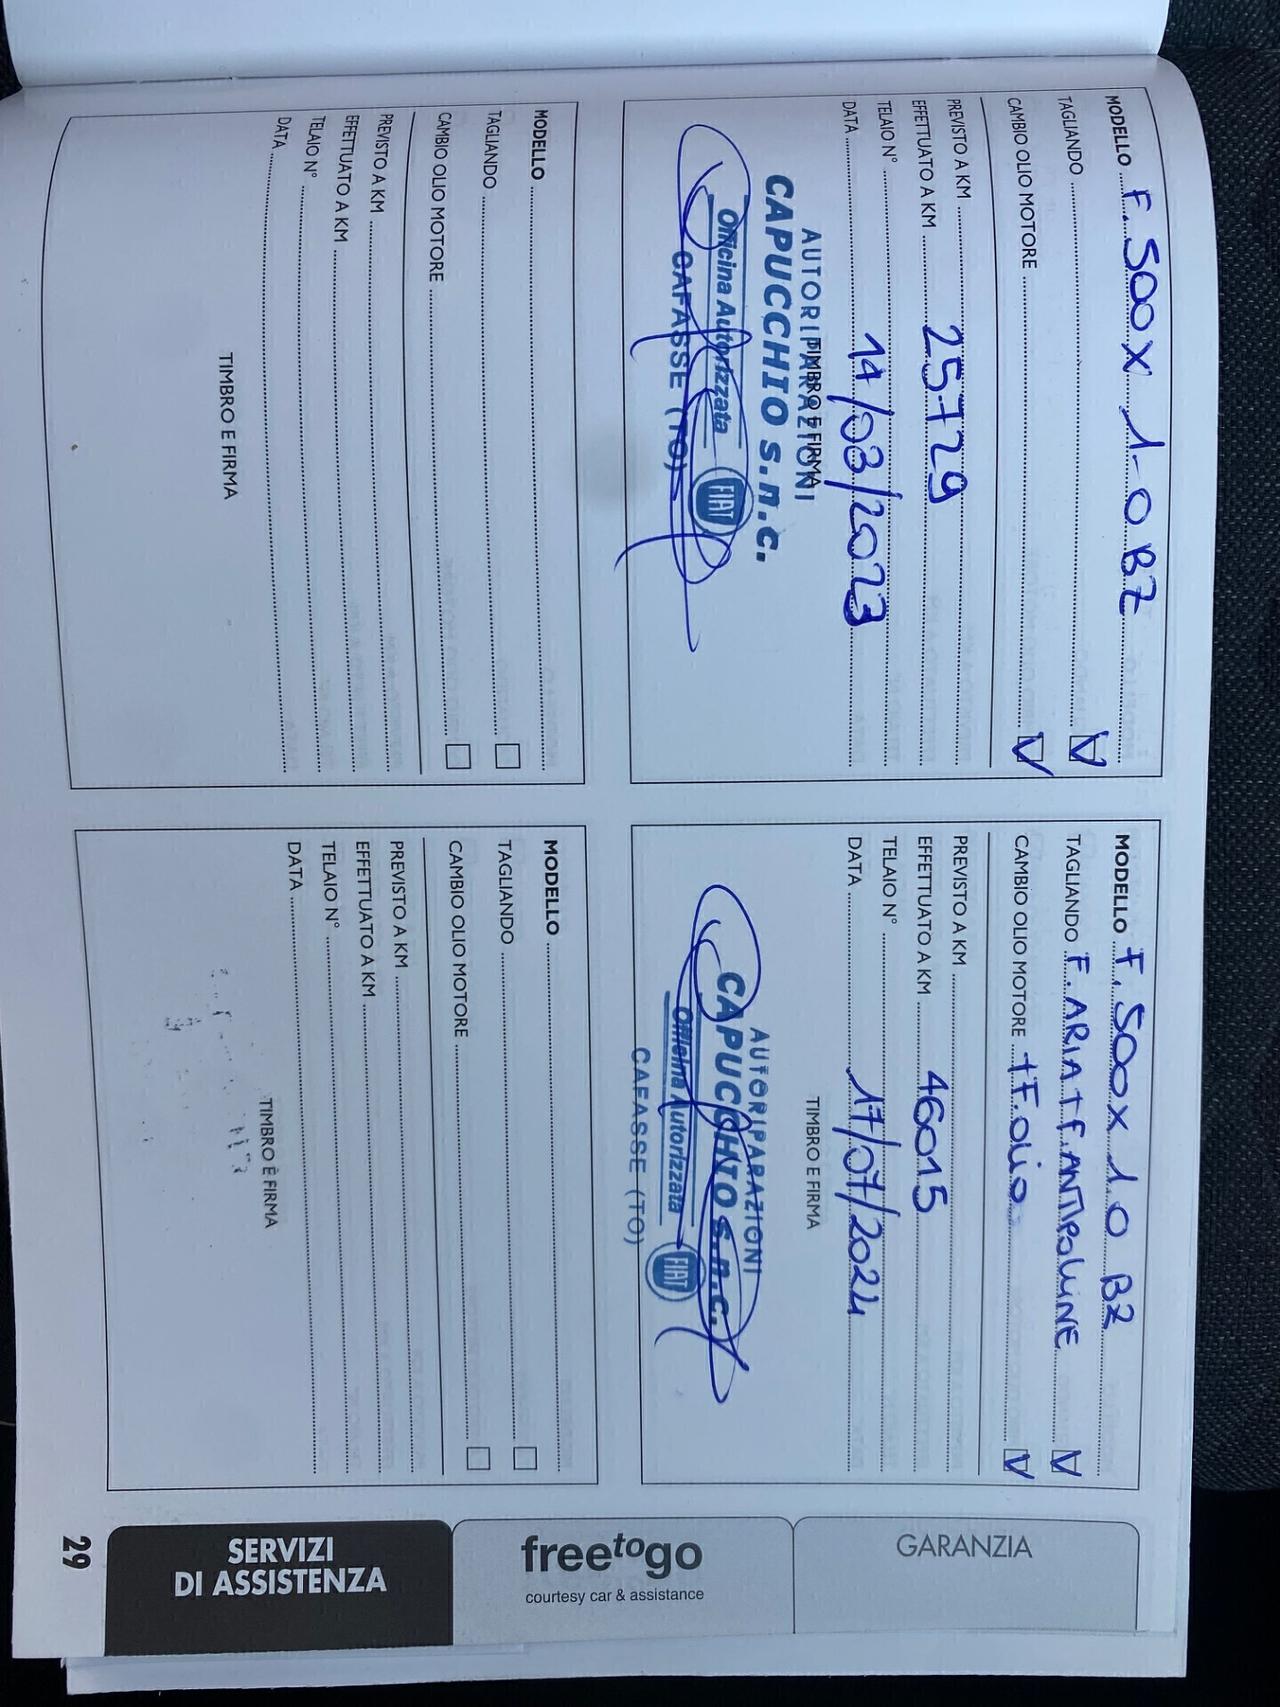 MODELLO F. 500 X 1.0 BZ
TAGLIANDO V
CAMBIO OLIO MOTORE V
PREVISTO A KM
EFFETTUATO A KM 25729
TELAIO N°
DATA 14/03/2023
TIMBRO E FIRMA
AUTORIPARAZIONI
CAPUCCHIO s.n.c.
Officina Autorizzata FIAT
CAFASSE (TO)
MODELLO F. 500 X 1.0 BZ
TAGLIANDO F. ARIA + F. ANTIPOLLINE V
CAMBIO OLIO MOTORE + F. OLIO V
PREVISTO A KM
EFFETTUATO A KM 46015
TELAIO N°
DATA 17/07/2024
TIMBRO E FIRMA
AUTORIPARAZIONI
CAPUCCHIO s.n.c.
Officina Autorizzata FIAT
CAFASSE (TO)
MODELLO
TAGLIANDO
CAMBIO OLIO MOTORE
PREVISTO A KM
EFFETTUATO A KM
TELAIO N°
DATA
TIMBRO E FIRMA
MODELLO
TAGLIANDO
CAMBIO OLIO MOTORE
PREVISTO A KM
EFFETTUATO A KM
TELAIO N°
DATA
TIMBRO E FIRMA
GARANZIA
freetogo
courtesy car & assistance
SERVIZI
DI ASSISTENZA
29